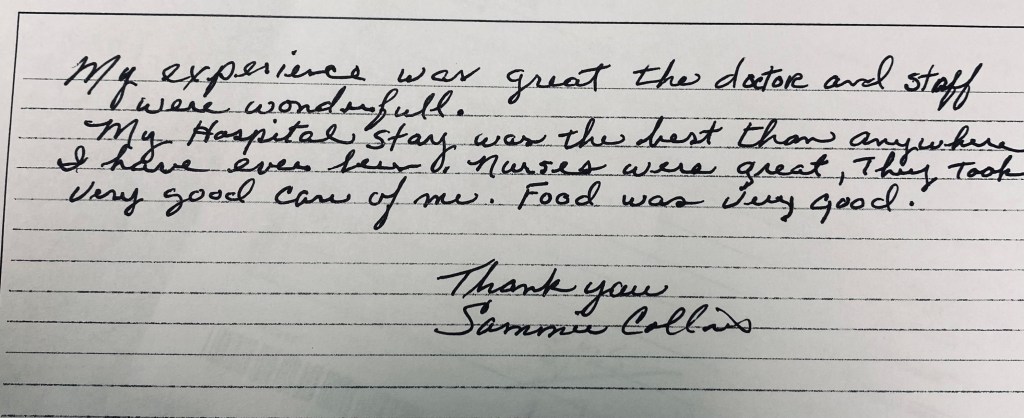 My experience was great the doctor and staff
were wonderfull.
My Hospital stay was the best than anywhere
I have ever been. Nurses were great, They Took
Very good care of me. Food was very good.
Thank you
Sammie Collins